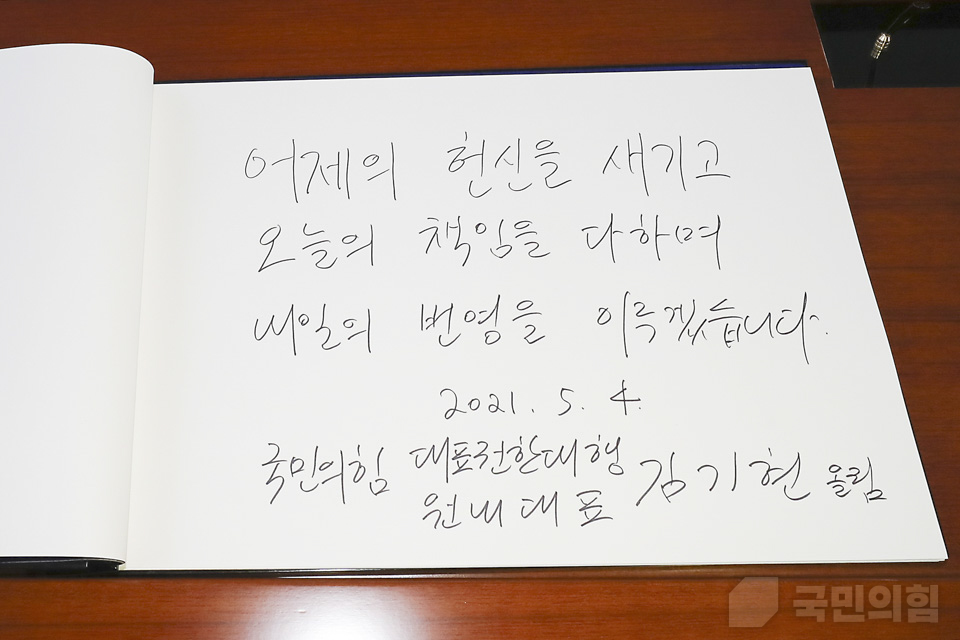 어제의 헌신을 새기고
오늘의 책임을 다하며
내일의 번영을 이루겠습니다.
2021. 5. 4.
국민의힘 대표권한대행
원내대표 김기현 올림
국민의힘